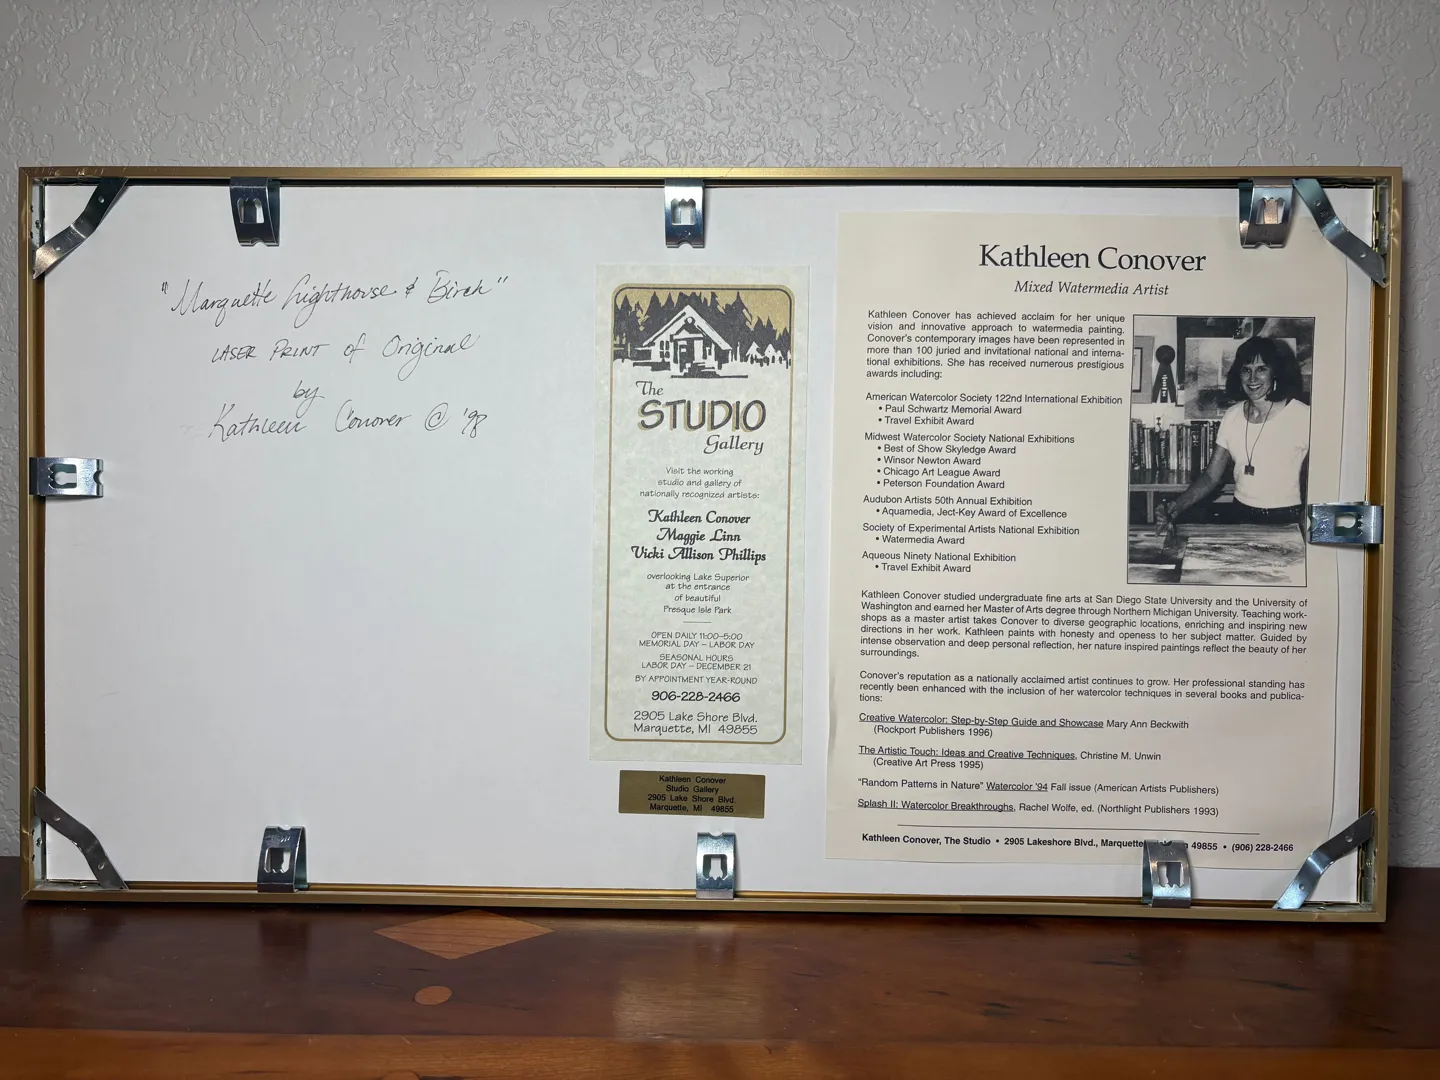 "Marquette Lighthouse & Birch"
LASER PRINT of Original
by
Kathleen Conover © '98
The
STUDIO
Gallery
Visit the working
studio and gallery of
nationally recognized artists:
Kathleen Conover
Maggie Linn
Vicki Allison Phillips
overlooking Lake Superior
at the entrance
of beautiful
Presque Isle Park
OPEN DAILY 11:00–5:00
MEMORIAL DAY – LABOR DAY
SEASONAL HOURS
LABOR DAY – DECEMBER 21
BY APPOINTMENT YEAR-ROUND
906-228-2466
2905 Lake Shore Blvd.
Marquette, MI 49855
Kathleen Conover
Studio Gallery
2905 Lake Shore Blvd.
Marquette, MI 49855
Kathleen Conover
Mixed Watermedia Artist
Kathleen Conover has achieved acclaim for her unique
vision and innovative approach to watermedia painting.
Conover's contemporary images have been represented in
more than 100 juried and invitational national and interna-
tional exhibitions. She has received numerous prestigious
awards including:
American Watercolor Society 122nd International Exhibition
• Paul Schwartz Memorial Award
• Travel Exhibit Award
Midwest Watercolor Society National Exhibitions
• Best of Show Skyledge Award
• Winsor Newton Award
• Chicago Art League Award
• Peterson Foundation Award
Audubon Artists 50th Annual Exhibition
• Aquamedia, Ject-Key Award of Excellence
Society of Experimental Artists National Exhibition
• Watermedia Award
Aqueous Ninety National Exhibition
• Travel Exhibit Award
Kathleen Conover studied undergraduate fine arts at San Diego State University and the University of
Washington and earned her Master of Arts degree through Northern Michigan University. Teaching work-
shops as a master artist takes Conover to diverse geographic locations, enriching and inspiring new
directions in her work. Kathleen paints with honesty and openess to her subject matter. Guided by
intense observation and deep personal reflection, her nature inspired paintings reflect the beauty of her
surroundings.
Conover's reputation as a nationally acclaimed artist continues to grow. Her professional standing has
recently been enhanced with the inclusion of her watercolor techniques in several books and publica-
tions:
Creative Watercolor: Step-by-Step Guide and Showcase Mary Ann Beckwith
(Rockport Publishers 1996)
The Artistic Touch: Ideas and Creative Techniques, Christine M. Unwin
(Creative Art Press 1995)
"Random Patterns in Nature" Watercolor '94 Fall issue (American Artists Publishers)
Splash II: Watercolor Breakthroughs, Rachel Wolfe, ed. (Northlight Publishers 1993)
Kathleen Conover, The Studio • 2905 Lakeshore Blvd., Marquette 49855 • (906) 228-2466